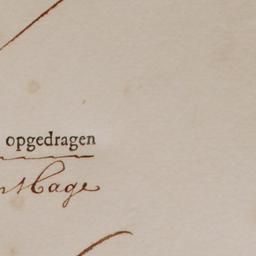 opgedragen
Hage